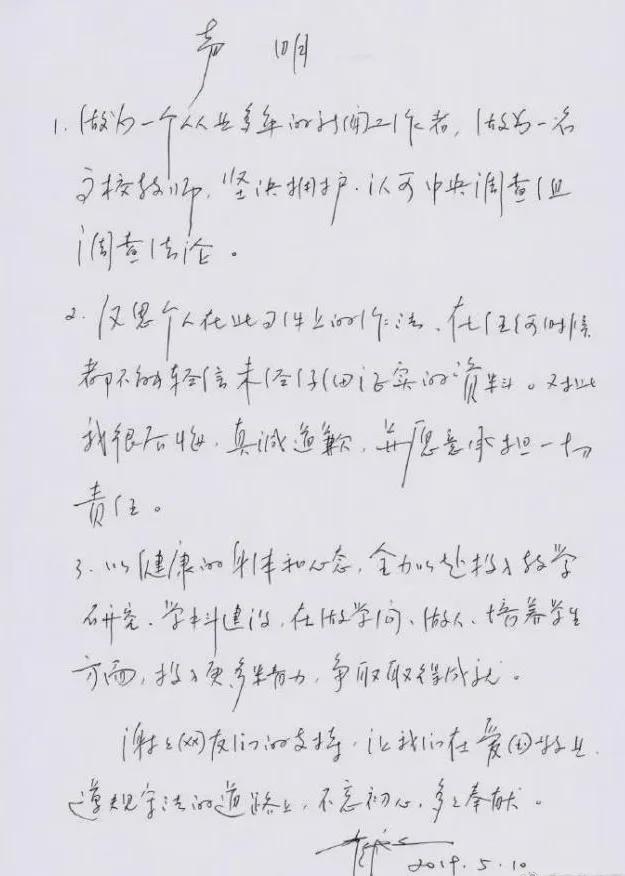 声 明
1. 做为一个从业多年的新闻工作者,做为一名
高校教师,坚决拥护、认可中央调查组
调查结论。
2. 反思个人在此事件上的作法,在任何时候
都不能轻信未经仔细证实的资料。对此
我很后悔,真诚道歉,并愿意承担一切
责任。
3. 以健康的身体和心态,全力以赴投入教学
研究、学科建设,在做学问、做人、培养学生
方面,投入更多精力,争取取得成就。
谢谢网友们的支持,让我们在爱国敬业
遵规守法的道路上,不忘初心,多多奉献。
2019.5.10